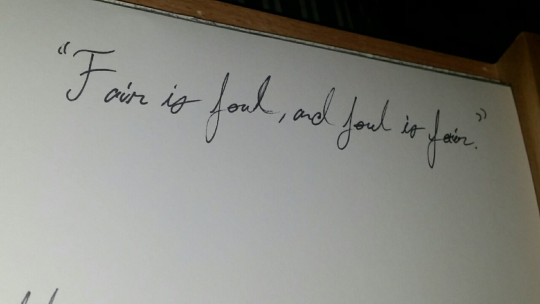 "Fair is foul, and foul is fair."